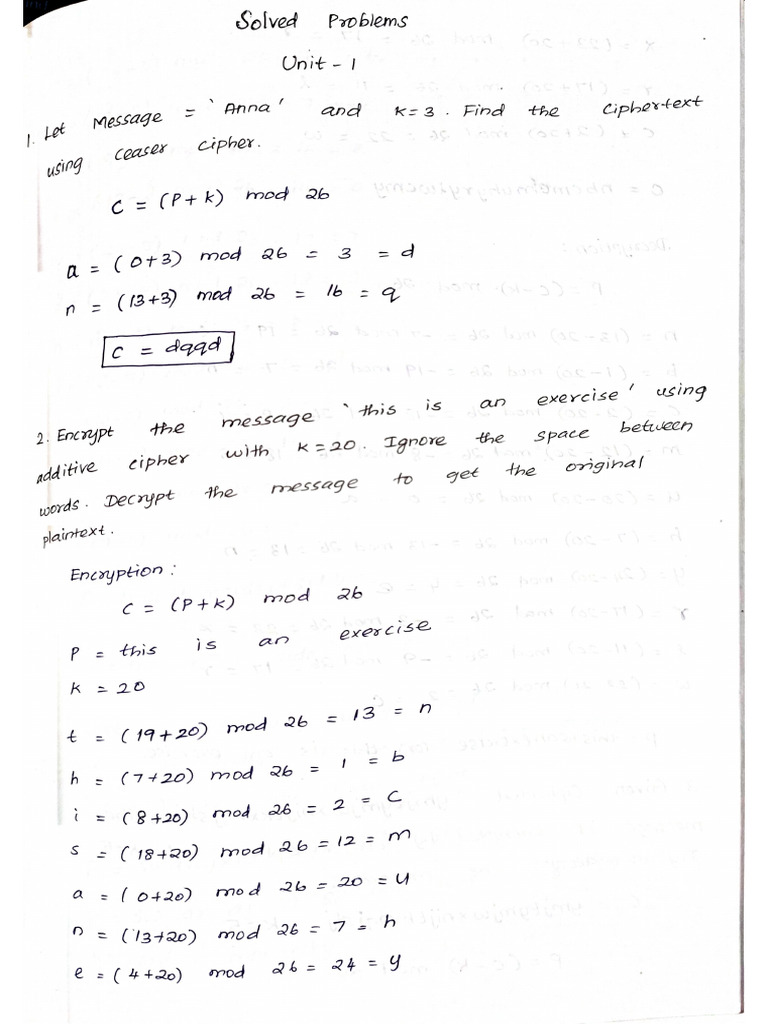 Solved Problems
Unit - 1
1. Let Message = 'Anna' and k=3. Find the ciphertext
using ceaser cipher.
C = (P+k) mod 26
a = (0+3) mod 26 = 3 = d
n = (13+3) mod 26 = 16 = q
C = dqqd
2. Encrypt the message 'this is an exercise' using
additive cipher with k=20. Ignore the space between
words. Decrypt the message to get the original
plaintext.
Encryption:
C = (P+k) mod 26
P = this is an exercise
k = 20
t = (19+20) mod 26 = 13 = n
h = (7+20) mod 26 = 1 = b
i = (8+20) mod 26 = 2 = c
s = (18+20) mod 26 = 12 = m
a = (0+20) mod 26 = 20 = u
n = (13+20) mod 26 = 7 = h
e = (4+20) mod 26 = 24 = y